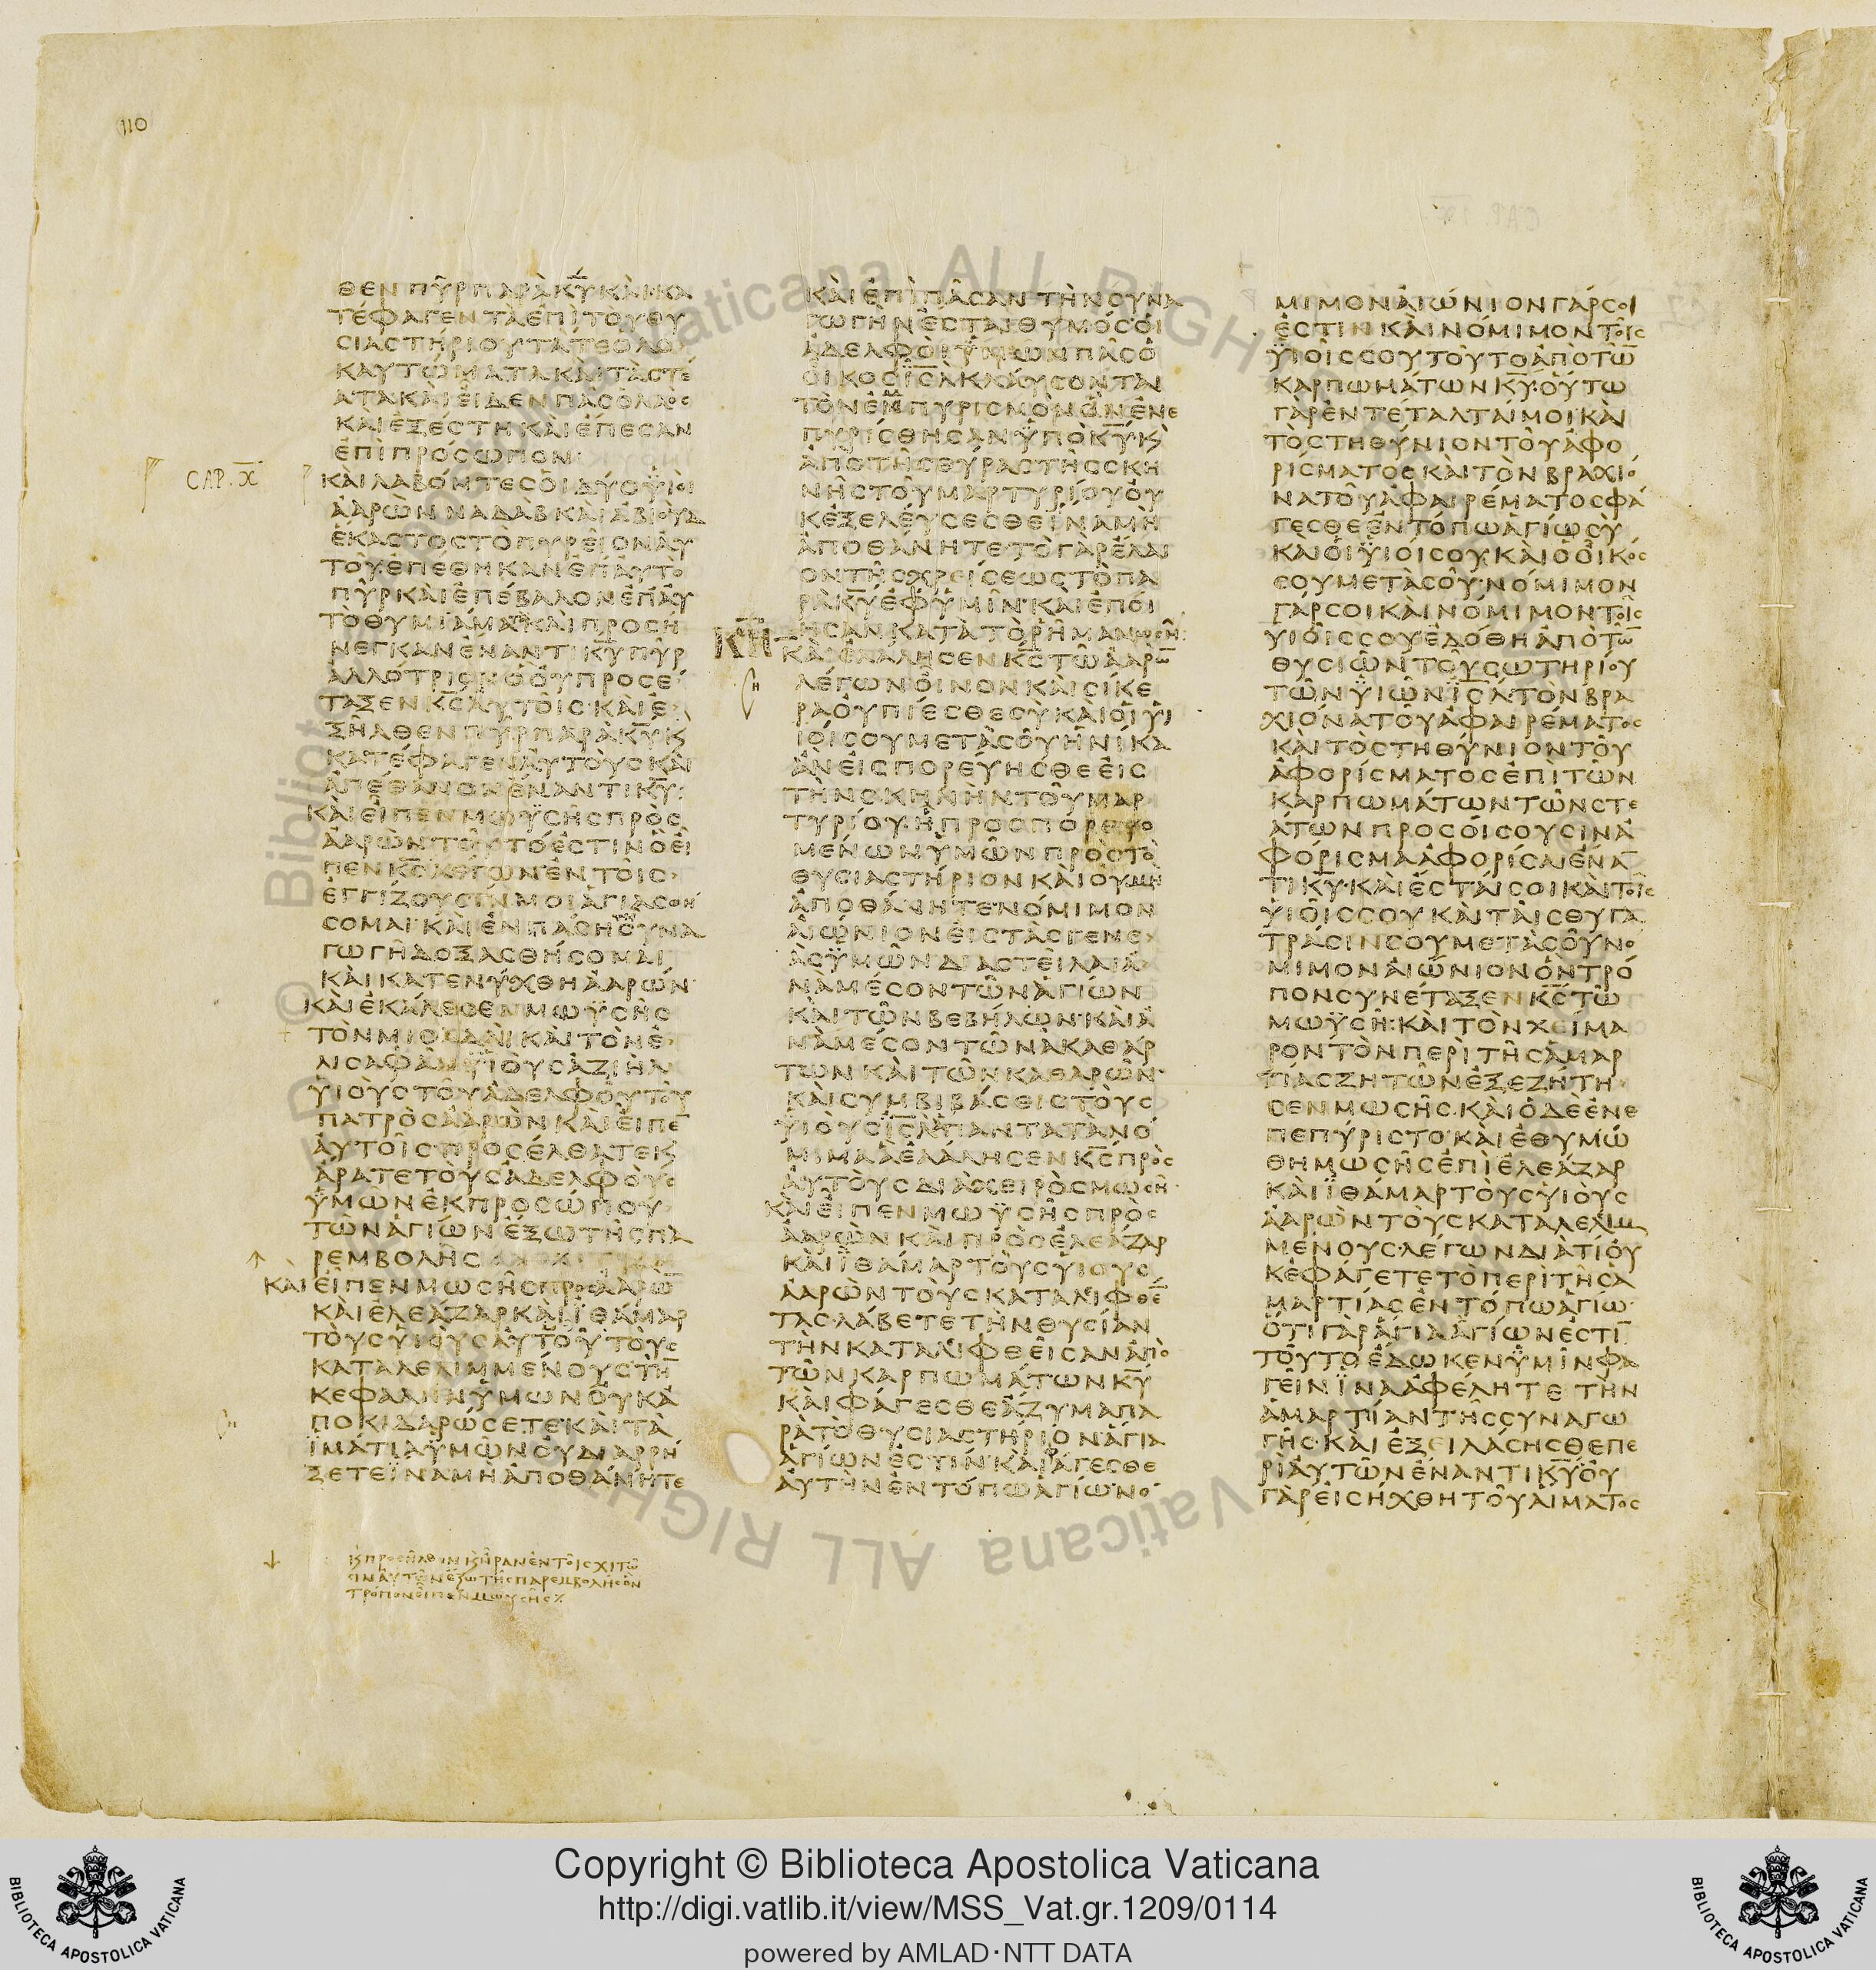 110
ΘΕΝ ΠΥΡ ΠΑΡΑ ΚΥ ΚΑΙ ΚΑ
ΤΕΦΑΓΕΝ ΤΑ ΕΠΙ ΤΟΥ ΘΥ
ΣΙΑΣΤΗΡΙΟΥ ΤΑ ΤΕ ΟΛΟ
ΚΑΥΤΩΜΑΤΑ ΚΑΙ ΤΑ ΣΤΕ
ΑΤΑ ΚΑΙ ΕΙΔΕΝ ΠΑΣ Ο ΛΑΟΣ
ΚΑΙ ΕΞΕΣΤΗ ΚΑΙ ΕΠΕΣΑΝ
ΕΠΙ ΠΡΟΣΩΠΟΝ·
CAP. X
ΚΑΙ ΛΑΒΟΝΤΕΣ ΟΙ ΔΥΟ ΥΙΟΙ
ΑΑΡΩΝ ΝΑΔΑΒ ΚΑΙ ΑΒΙΟΥΔ
ΕΚΑΣΤΟΣ ΤΟ ΠΥΡΕΙΟΝ ΑΥ
ΤΟΥ ΕΠΕΘΗΚΑΝ ΕΠ ΑΥΤΟ
ΠΥΡ ΚΑΙ ΕΠΕΒΑΛΟΝ ΕΠ ΑΥ
ΤΟ ΘΥΜΙΑΜΑ ΚΑΙ ΠΡΟΣΗ
ΝΕΓΚΑΝ ΕΝΑΝΤΙ ΚΥ ΠΥΡ
ΑΛΛΟΤΡΙΟΝ Ο ΟΥ ΠΡΟΣΕ
ΤΑΞΕΝ ΚΣ ΑΥΤΟΙΣ· ΚΑΙ Ε
ΞΗΛΘΕΝ ΠΥΡ ΠΑΡΑ ΚΥ Κ
ΚΑΤΕΦΑΓΕΝ ΑΥΤΟΥΣ ΚΑΙ
ΑΠΕΘΑΝΟΝ ΕΝΑΝΤΙ ΚΥ·
ΚΑΙ ΕΙΠΕΝ ΜΩΥΣΗΣ ΠΡΟΣ
ΑΑΡΩΝ ΤΟΥΤΟ ΕΣΤΙΝ Ο ΕΙ
ΠΕΝ ΚΣ ΛΕΓΩΝ ΕΝ ΤΟΙΣ
ΕΓΓΙΖΟΥΣΙΝ ΜΟΙ ΑΓΙΑΣΘΗ
ΣΟΜΑΙ· ΚΑΙ ΕΝ ΠΑΣΗ ΣΥΝΑ
ΓΩΓΗ ΔΟΞΑΣΘΗΣΟΜΑΙ
ΚΑΙ ΚΑΤΕΝΥΧΘΗ ΑΑΡΩΝ·
ΚΑΙ ΕΚΑΛΕΣΕΝ ΜΩΥΣΗΣ
ΤΟΝ ΜΙΣΑΔΑΙ ΚΑΙ ΤΟΝ Ε
ΛΙΣΑΦΑΝ ΥΙΟΥΣ ΑΖΙΗΛ
ΥΙΟΥΣ ΤΟΥ ΑΔΕΛΦΟΥ ΤΟΥ
ΠΑΤΡΟΣ ΑΑΡΩΝ ΚΑΙ ΕΙΠΕ
ΑΥΤΟΙΣ ΠΡΟΣΕΛΘΑΤΕ Κ
ΑΡΑΤΕ ΤΟΥΣ ΑΔΕΛΦΟΥΣ
ΥΜΩΝ ΕΚ ΠΡΟΣΩΠΟΥ
ΤΩΝ ΑΓΙΩΝ ΕΞΩ ΤΗΣ ΠΑ
ΡΕΜΒΟΛΗΣ
ΚΑΙ ΕΙΠΕΝ ΜΩΣΗΣ ΠΡΟΣ ΑΑΡΩ
ΚΑΙ ΕΛΕΑΖΑΡ ΚΑΙ ΙΘΑΜΑΡ
ΤΟΥΣ ΥΙΟΥΣ ΑΥΤΟΥ ΤΟΥΣ
ΚΑΤΑΛΕΛΙΜΜΕΝΟΥΣ ΤΗ
ΚΕΦΑΛΗΝ ΥΜΩΝ ΟΥΚ Α
ΠΟΚΙΔΑΡΩΣΕΤΕ ΚΑΙ ΤΑ
ΙΜΑΤΙΑ ΥΜΩΝ ΟΥ ΔΙΑΡΡΗ
ΞΕΤΕ ΙΝΑ ΜΗ ΑΠΟΘΑΝΗΤΕ
Κ ΠΡΟΣΗΛΘΟΝ Κ ΗΡΑΝ ΕΝ ΤΟΙΣ ΧΙΤΩ
ΣΙΝ ΑΥΤΩΝ ΕΞΩ ΤΗΣ ΠΑΡΕΜΒΟΛΗΣ ΟΝ
ΤΡΟΠΟΝ ΕΙΠΕΝ ΜΩΥΣΗΣ
ΚΑΙ ΕΠΙ ΠΑΣΑΝ ΤΗΝ ΣΥΝΑ
ΓΩΓΗΝ ΕΣΤΑΙ ΘΥΜΟΣ· ΟΙ
ΑΔΕΛΦΟΙ ΥΜΩΝ ΠΑΣ Ο
ΟΙΚΟΣ ΙΣΛ ΚΛΑΥΣΟΝΤΑΙ
ΤΟΝ ΕΜΠΥΡΙΣΜΟΝ ΟΝ ΕΝΕ
ΠΥΡΙΣΘΗΣΑΝ ΥΠΟ ΚΥ· Κ
ΑΠΟ ΤΗΣ ΘΥΡΑΣ ΤΗΣ ΣΚΗ
ΝΗΣ ΤΟΥ ΜΑΡΤΥΡΙΟΥ ΟΥ
Κ ΕΞΕΛΕΥΣΕΣΘΕ ΙΝΑ ΜΗ
ΑΠΟΘΑΝΗΤΕ ΤΟ ΓΑΡ ΕΛΑΙ
ΟΝ ΤΗΣ ΧΡΕΙΣΕΩΣ ΤΟ ΠΑ
ΡΑ ΚΥ ΕΦ ΥΜΙΝ· ΚΑΙ ΕΠΟΙ
ΗΣΑΝ ΚΑΤΑ ΤΟ ΡΗΜΑ ΜΩΣΗ·
ΚΑΙ ΕΛΑΛΗΣΕΝ ΚΣ ΤΩ ΑΑΡΩ
ΛΕΓΩΝ· ΟΙΝΟΝ ΚΑΙ ΣΙΚΕ
ΡΑ ΟΥ ΠΙΕΣΘΕ ΣΥ ΚΑΙ ΟΙ ΥΙ
ΙΟΙ ΣΟΥ ΜΕΤΑ ΣΟΥ ΗΝΙΚΑ
ΑΝ ΕΙΣΠΟΡΕΥΗΣΘΕ ΕΙΣ
ΤΗΝ ΣΚΗΝΗΝ ΤΟΥ ΜΑΡ
ΤΥΡΙΟΥ· Η ΠΡΟΣΠΟΡΕΥΟ
ΜΕΝΩΝ ΥΜΩΝ ΠΡΟΣ ΤΟ
ΘΥΣΙΑΣΤΗΡΙΟΝ ΚΑΙ ΟΥ ΜΗ
ΑΠΟΘΑΝΗΤΕ· ΝΟΜΙΜΟΝ
ΑΙΩΝΙΟΝ ΕΙΣ ΤΑΣ ΓΕΝΕ
ΑΣ ΥΜΩΝ ΔΙΑΣΤΕΙΛΑΙ Α
ΝΑ ΜΕΣΟΝ ΤΩΝ ΑΓΙΩΝ
ΚΑΙ ΤΩΝ ΒΕΒΗΛΩΝ· ΚΑΙ Α
ΝΑ ΜΕΣΟΝ ΤΩΝ ΑΚΑΘΑΡ
ΤΩΝ ΚΑΙ ΤΩΝ ΚΑΘΑΡΩΝ·
ΚΑΙ ΣΥΜΒΙΒΑΣΘΙΣ ΤΟΥΣ
ΥΙΟΥΣ ΙΣΛ ΠΑΝΤΑ ΤΑ ΝΟ
ΜΙΜΑ Α ΕΛΑΛΗΣΕΝ ΚΣ ΠΡΟΣ
ΑΥΤΟΥΣ ΔΙΑ ΧΕΙΡΟΣ ΜΩΣΗ·
ΚΑΙ ΕΙΠΕΝ ΜΩΥΣΗΣ ΠΡΟΣ
ΑΑΡΩΝ ΚΑΙ ΠΡΟΣ ΕΛΕΑΖΑΡ
ΚΑΙ ΙΘΑΜΑΡ ΤΟΥΣ ΥΙΟΥΣ
ΑΑΡΩΝ ΤΟΥΣ ΚΑΤΑΛΙΦΘΕ
ΤΑΣ· ΛΑΒΕΤΕ ΤΗΝ ΘΥΣΙΑΝ
ΤΗΝ ΚΑΤΑΛΙΦΘΕΙΣΑΝ ΑΠΟ
ΤΩΝ ΚΑΡΠΩΜΑΤΩΝ ΚΥ
ΚΑΙ ΦΑΓΕΣΘΕ ΑΖΥΜΑ ΠΑ
ΡΑ ΤΟ ΘΥΣΙΑΣΤΗΡΙΟΝ· ΑΓΙΑ
ΑΓΙΩΝ ΕΣΤΙΝ· ΚΑΙ ΦΑΓΕΣΘΕ
ΑΥΤΗΝ ΕΝ ΤΟΠΩ ΑΓΙΩ· ΝΟ
ΜΙΜΟΝ ΑΙΩΝΙΟΝ ΓΑΡ ΣΟΙ
ΕΣΤΙΝ ΚΑΙ ΝΟΜΙΜΟΝ ΤΟΙΣ
ΥΙΟΙΣ ΣΟΥ ΤΟΥΤΟ ΑΠΟ ΤΩ
ΚΑΡΠΩΜΑΤΩΝ ΚΥ· ΟΥΤΩ
ΓΑΡ ΕΝΤΕΤΑΛΤΑΙ ΜΟΙ ΚΑΙ
ΤΟ ΣΤΗΘΥΝΙΟΝ ΤΟΥ ΑΦΟ
ΡΙΣΜΑΤΟΣ ΚΑΙ ΤΟΝ ΒΡΑΧΙΟ
ΝΑ ΤΟΥ ΑΦΑΙΡΕΜΑΤΟΣ ΦΑ
ΓΕΣΘΕ ΕΝ ΤΟΠΩ ΑΓΙΩ ΣΥ
ΚΑΙ ΟΙ ΥΙΟΙ ΣΟΥ ΚΑΙ Ο ΟΙΚΟΣ
ΣΟΥ ΜΕΤΑ ΣΟΥ· ΝΟΜΙΜΟΝ
ΓΑΡ ΣΟΙ ΚΑΙ ΝΟΜΙΜΟΝ ΤΟΙΣ
ΥΙΟΙΣ ΣΟΥ ΕΔΟΘΗ ΑΠΟ ΤΩ
ΘΥΣΙΩΝ ΤΟΥ ΣΩΤΗΡΙΟΥ
ΤΩΝ ΥΙΩΝ ΙΣΛ ΤΟΝ ΒΡΑ
ΧΙΟΝΑ ΤΟΥ ΑΦΑΙΡΕΜΑΤΟΣ
ΚΑΙ ΤΟ ΣΤΗΘΥΝΙΟΝ ΤΟΥ
ΑΦΟΡΙΣΜΑΤΟΣ ΕΠΙ ΤΩΝ
ΚΑΡΠΩΜΑΤΩΝ ΤΩΝ ΣΤΕ
ΑΤΩΝ ΠΡΟΣΟΙΣΟΥΣΙΝ Α
ΦΟΡΙΣΜΑ ΑΦΟΡΙΣΑΙ ΕΝΑ
ΤΙ ΚΥ· ΚΑΙ ΕΣΤΑΙ ΣΟΙ ΚΑΙ ΤΟΙΣ
ΥΙΟΙΣ ΣΟΥ ΚΑΙ ΤΑΙΣ ΘΥΓΑ
ΤΡΑΣΙΝ ΣΟΥ ΜΕΤΑ ΣΟΥ ΝΟ
ΜΙΜΟΝ ΑΙΩΝΙΟΝ ΟΝ ΤΡΟ
ΠΟΝ ΣΥΝΕΤΑΞΕΝ ΚΣ ΤΩ
ΜΩΥΣΗ: ΚΑΙ ΤΟΝ ΧΕΙΜΑ
ΡΟΝ ΤΟΝ ΠΕΡΙ ΤΗΣ ΑΜΑΡ
ΤΙΑΣ ΖΗΤΩΝ ΕΞΕΖΗΤΗ
ΣΕΝ ΜΩΣΗΣ· ΚΑΙ ΟΔΕ ΕΝΕ
ΠΕΠΥΡΙΣΤΟ· ΚΑΙ ΕΘΥΜΩ
ΘΗ ΜΩΣΗΣ ΕΠΙ ΕΛΕΑΖΑΡ
ΚΑΙ ΙΘΑΜΑΡ ΤΟΥΣ ΥΙΟΥΣ
ΑΑΡΩΝ ΤΟΥΣ ΚΑΤΑΛΕΛΙΜ
ΜΕΝΟΥΣ· ΛΕΓΩΝ ΔΙΑ ΤΙ ΟΥ
Κ ΕΦΑΓΕΤΕ ΤΟ ΠΕΡΙ ΤΗΣ Α
ΜΑΡΤΙΑΣ ΕΝ ΤΟΠΩ ΑΓΙΩ·
ΟΤΙ ΓΑΡ ΑΓΙΑ ΑΓΙΩΝ ΕΣΤΙ
ΤΟΥΤΟ ΕΔΩΚΕΝ ΥΜΙΝ ΦΑ
ΓΕΙΝ ΙΝΑ ΑΦΕΛΗΤΕ ΤΗΝ
ΑΜΑΡΤΙΑΝ ΤΗΣ ΣΥΝΑΓΩ
ΓΗΣ· ΚΑΙ ΕΞΕΙΛΑΣΗΣΘΕ ΠΕ
ΡΙ ΑΥΤΩΝ ΕΝΑΝΤΙ ΚΥ ΟΥ
ΓΑΡ ΕΙΣΗΧΘΗ ΤΟΥ ΑΙΜΑΤΟΣ
Copyright © Biblioteca Apostolica Vaticana
http://digi.vatlib.it/view/MSS_Vat.gr.1209/0114
powered by AMLAD·NTT DATA
BIBLIOTECA APOSTOLICA VATICANA
BIBLIOTECA APOSTOLICA VATICANA